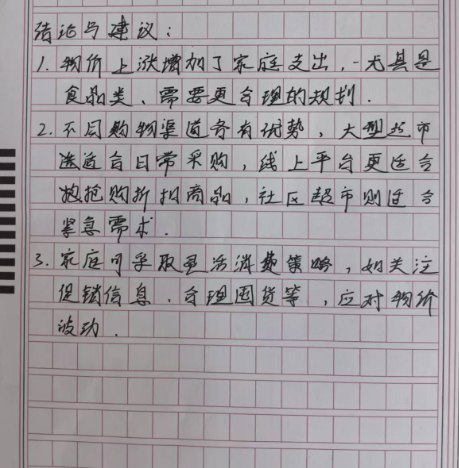 结论与建议:
1. 物价上涨增加了家庭支出,尤其是
食品类、需要更合理的规划.
2. 不同购物渠道各有优势,大型超市
适合日常采购,线上平台更适合
抢购折扣商品,社区超市则适合
紧急需求.
3. 家庭可采取灵活消费策略,如关注
促销信息、合理囤货等,应对物价
波动.